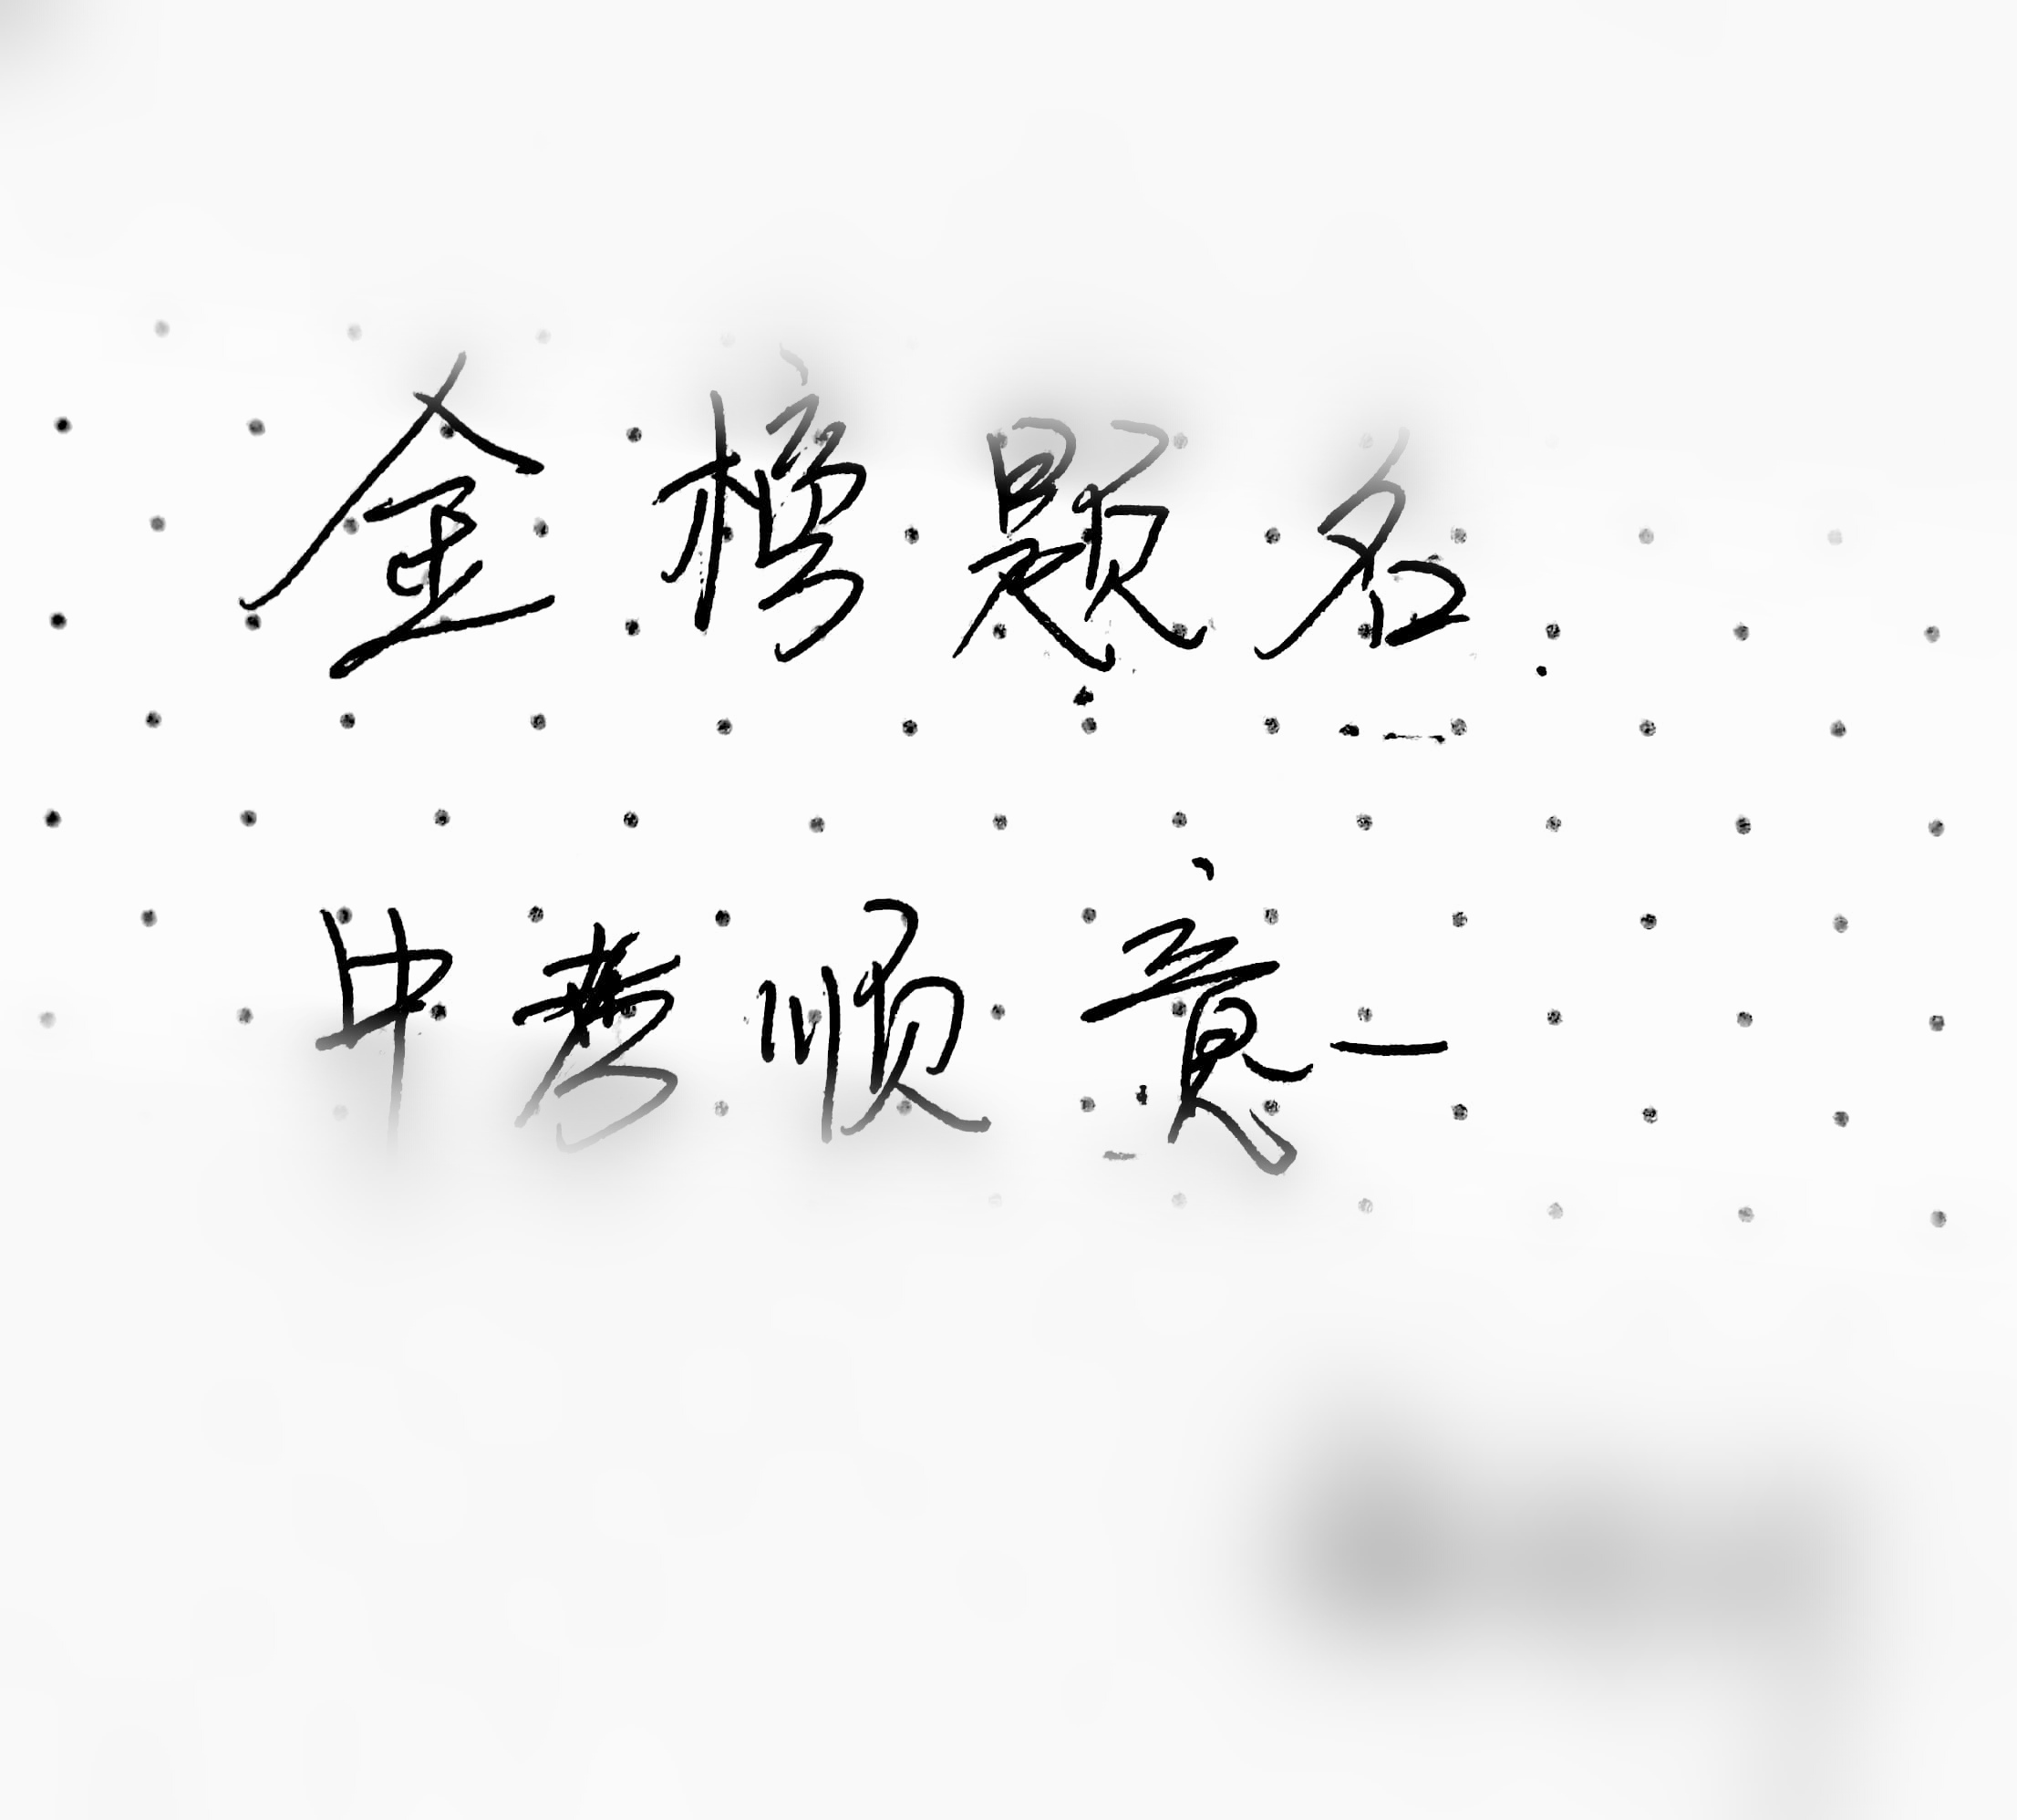 金榜题名
中考顺意一